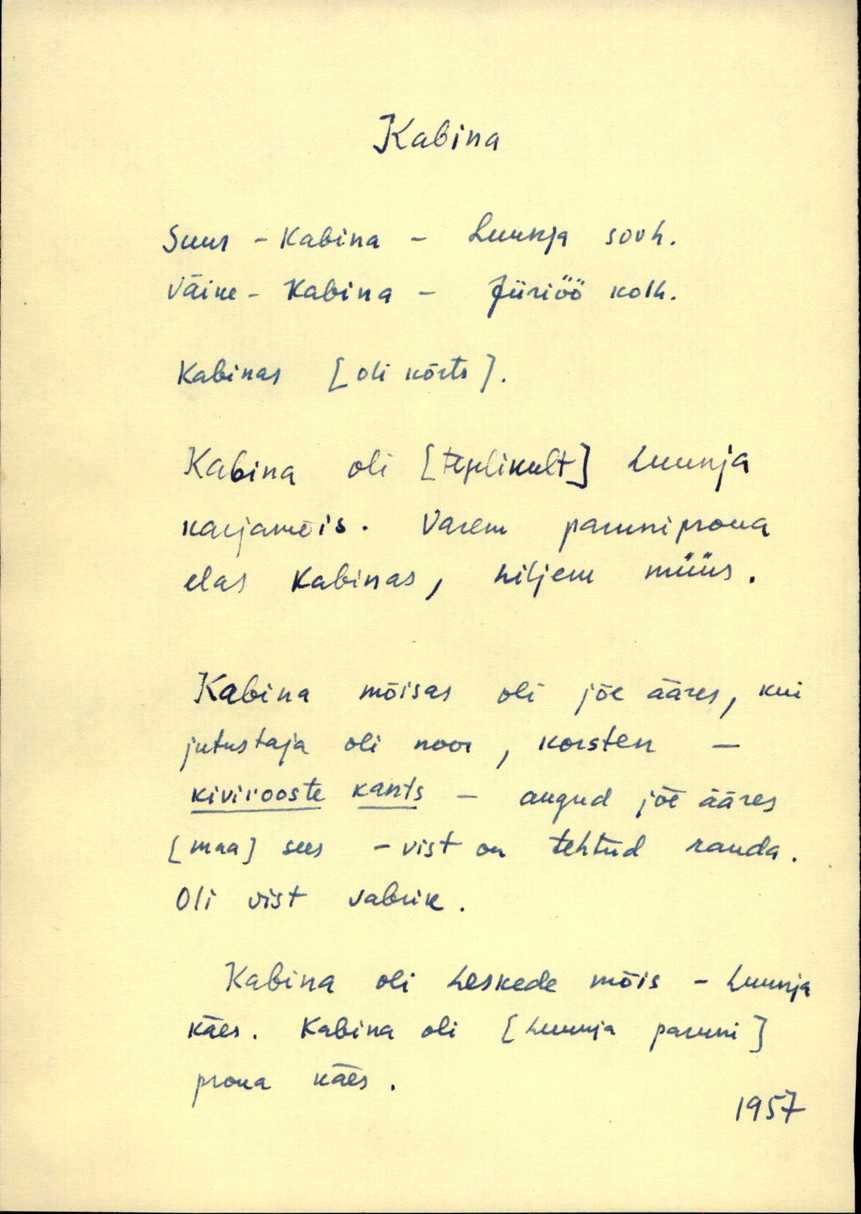 Kabina
Suur-Kabina - Luunja sovh.
Väike-Kabina - Jüriöö kolh.
Kabinas [oli kõrts].
Kabina oli [täielikult] Luunja
karjamõis. Varem paruniproua
elas Kabinas, hiljem müüs.
Kabina mõisas oli jõe ääres, kui
jutustaja oli noor, korsten —
kivirooste kants — augud jõe ääres
[maa] sees - vist on tehtud rauda.
Oli vist vabrik.
Kabina oli Leskede mõis - Luunja
käes. Kabina oli [Luunja paruni]
proua käes.
1957